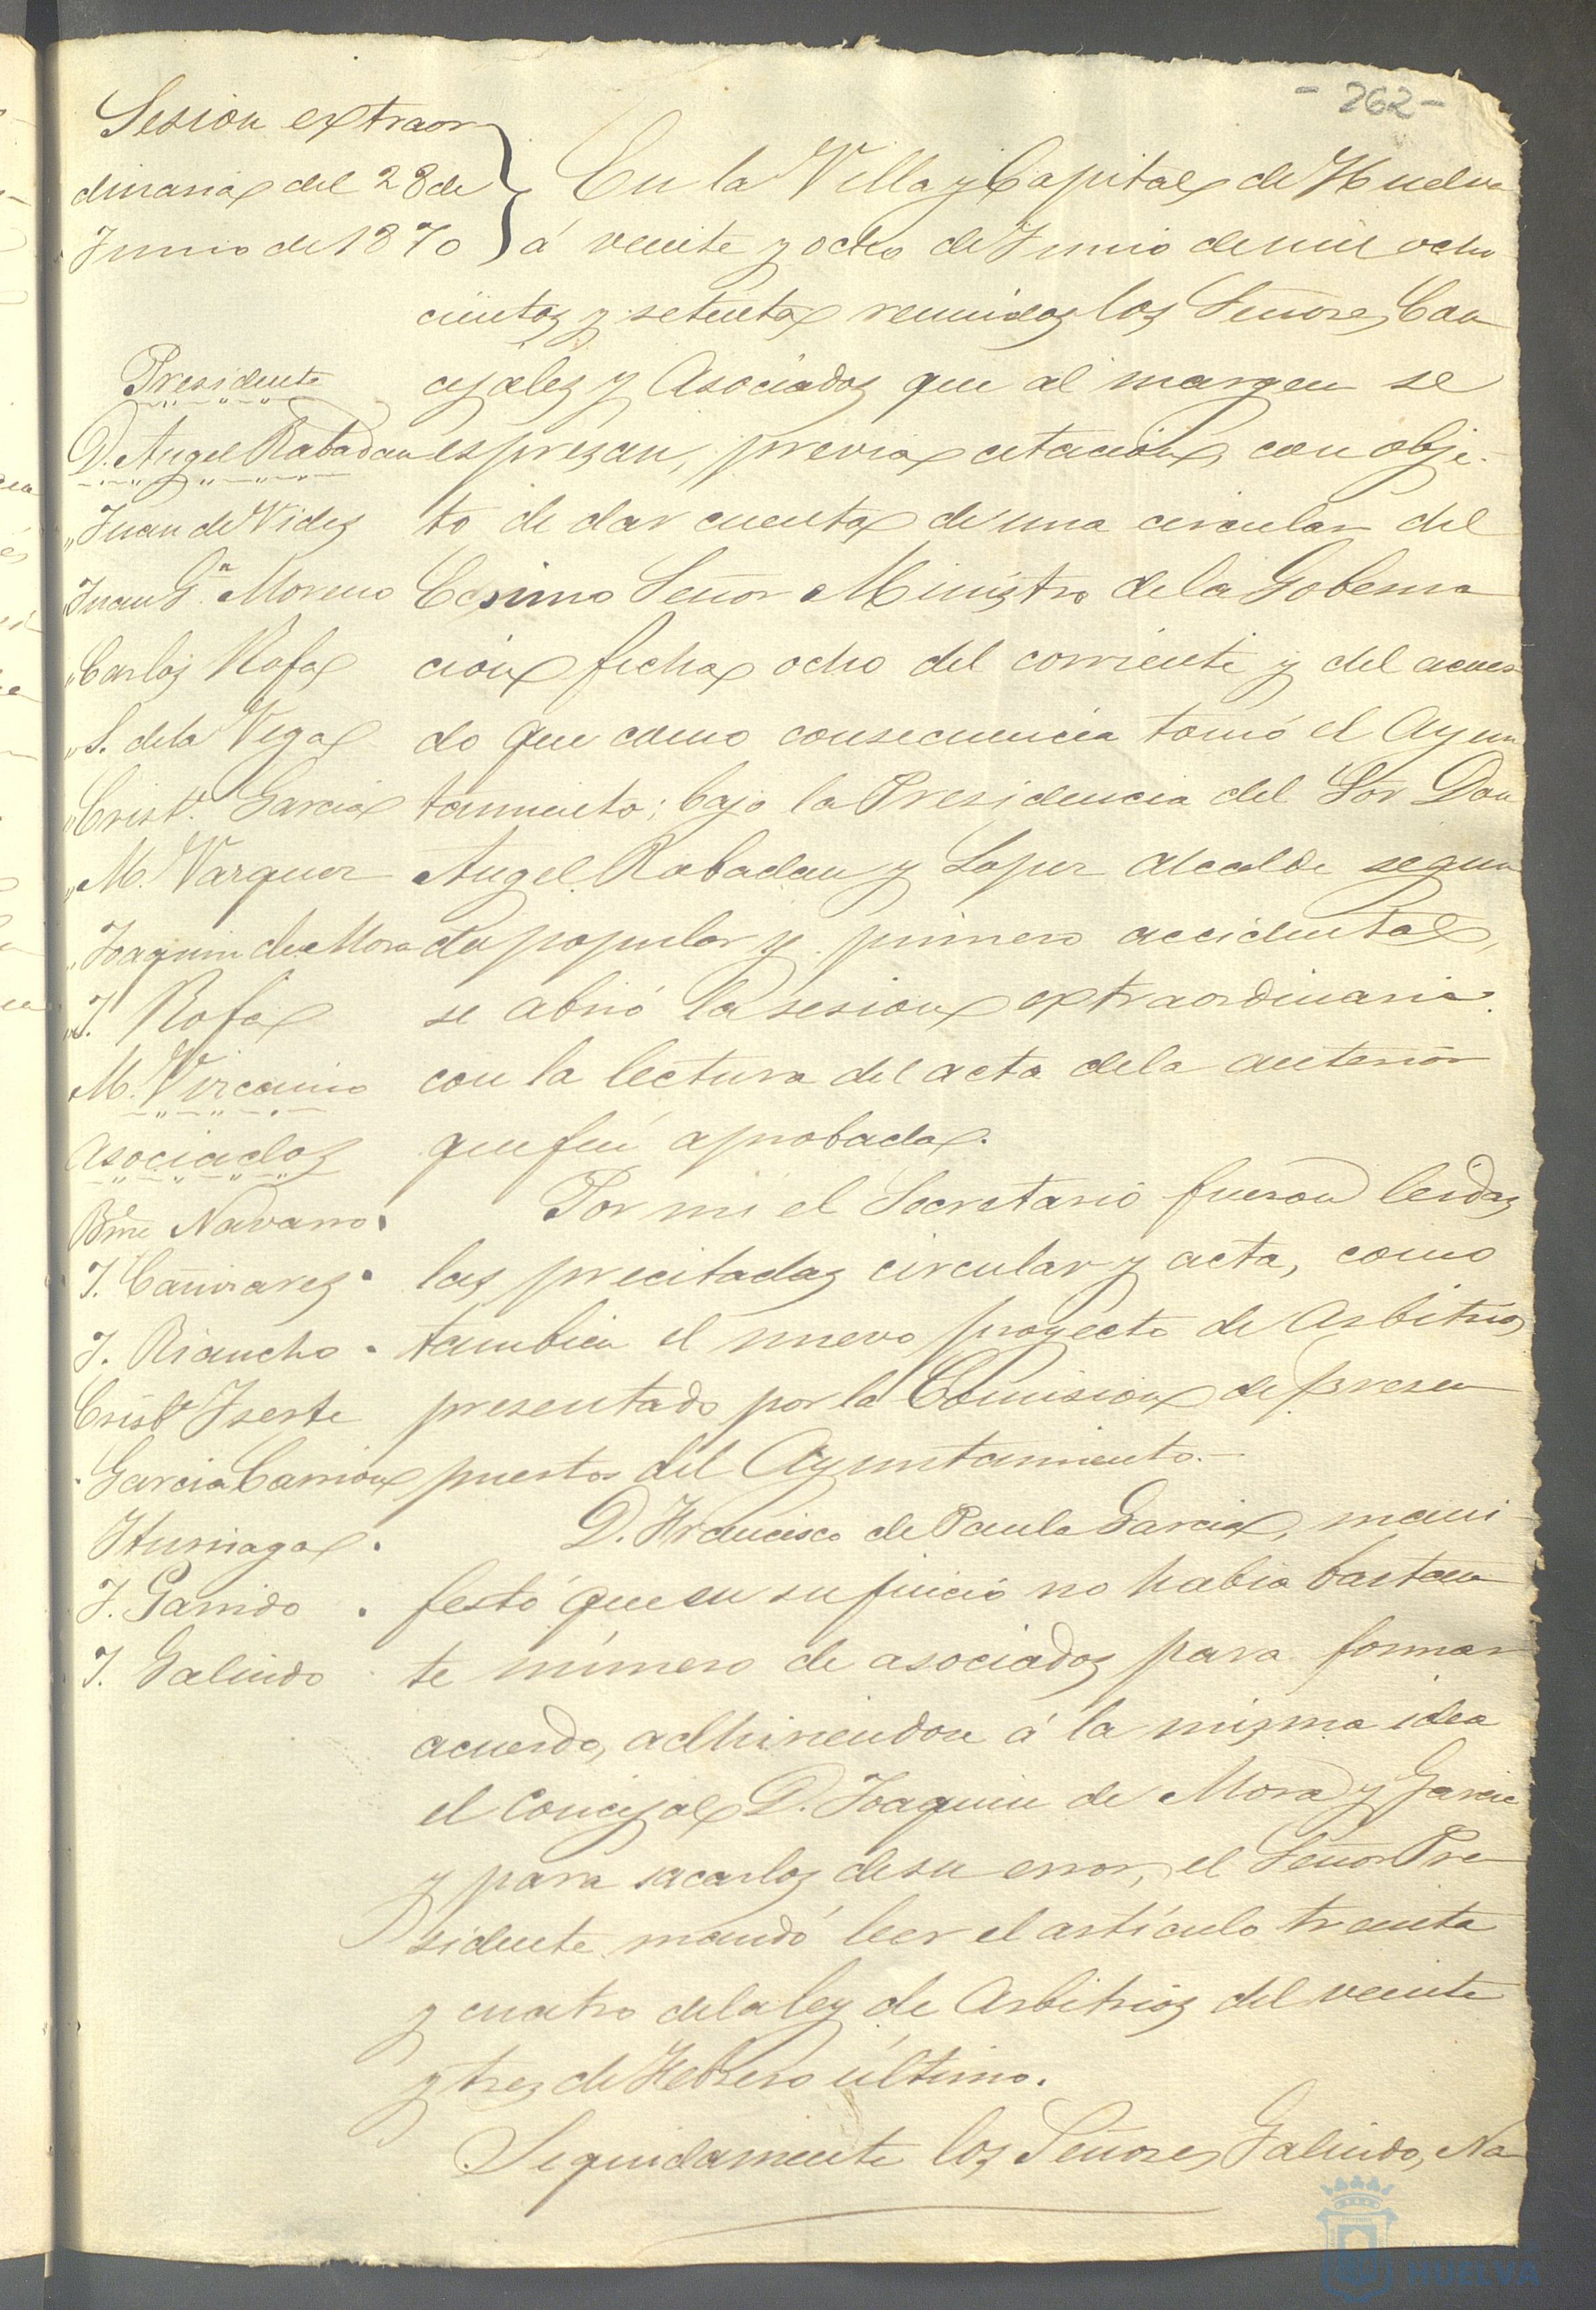 - 262 -
Sesion extraor
dinaria del 28 de
Junio de 1870
En la Villa y Capital de Huelva
á veinte y ocho de Junio de mil ocho
cientos y setenta reunidos los Señores Con
cejales y Asociados que al margen se
espresan, previa citacion, con obje-
to de dar cuenta de una circular del
Ecsimo Señor Ministro de la Goberna
cion fecha ocho del corriente y del acuer
do que como consecuencia tomó el Ayun
tamiento; bajo la Presidencia del Sor Don
Angel Rabadan y Lopez Alcalde segun
do popular y primero accidental,
se abrió la sesion extraordinaria
con la lectura del acta de la anterior
que fué aprobada.
Por mi el Secretario fueron leidas
las precitadas circular y acta, como
tambien el nuevo proyecto de Arbitrios
presentado por la Comision de presu
puestos del Ayuntamiento.-
D. Francisco de Paula Garcia, mani-
festó que en su juicio no habia bastan
te número de asociados para formar
acuerdo, adhiriendose á la misma idea
el Concejal D. Joaquin de Mora y Garcia
y para sacarlos de su error, el Señor Pre
sidente mandó leer el artículo treinta
y cuatro de la ley de Arbitrios del veinte
y tres de Febrero último.
Seguidamente los Señores Galindo, Na
Presidente
D. Angel Rabadan
" Juan de Vides
Juan G.ª Moreno
" Carlos Rofa
" S. de la Vega
" Crist.l Garcia
" M. Vazquez
" Joaquin de Mora
" J. Rofa
M. Vizcaino
Asociados
Bmé Navarro.
J. Cañizares.
J. Riancho.
Cristl Iserte
Garcia Carrion
Iturriaga.
J. Garrido.
J. Galindo
HUELVA